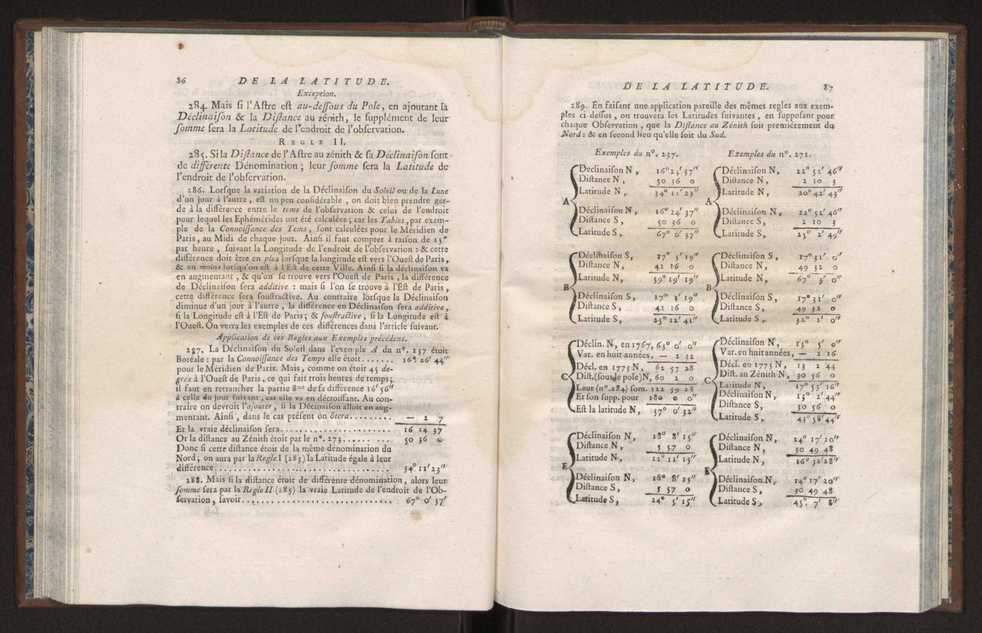 86 DE LA LATITUDE.
Exception.
284. Mais si l'Astre est au-dessous du Pole, en ajoutant la
Déclinaison & la Distance au zénith, le supplément de leur
somme sera la Latitude de l'endroit de l'observation.
REGLE II.
285. Si la Distance de l'Astre au zénith & sa Déclinaison sont
de différente Dénomination ; leur somme sera la Latitude de
l'endroit de l'observation.
286. Lorsque la variation de la Déclinaison du Soleil ou de la Lune
d'un jour à l'autre, est un peu considérable, on doit bien prendre gar-
de à la différence entre le tems de l'observation & celui de l'endroit
pour lequel les Ephémérides ont été calculées ; car les Tables, par exem-
ple de la Connoissance des Tems, sont calculées pour le Méridien de
Paris, au Midi de chaque jour. Ainsi il faut compter à raison de 15°
par heure, suivant la Longitude de l'endroit de l'observation : & cette
différence doit être en plus lorsque la longitude est vers l'Ouest de Paris,
& en moins lorsqu'on est à l'Est de cette Ville. Ainsi si la déclinaison va
en augmentant, & qu'on se trouve vers l'Ouest de Paris, la différence
de Déclinaison sera additive : mais si l'on se trouve à l'Est de Paris,
cette différence sera soustractive. Au contraire lorsque la Déclinaison
diminue d'un jour à l'autre, la différence en Déclinaison sera additive,
si la Longitude est à l'Est de Paris ; & soustractive, si la Longitude est à
l'Ouest. On verra les exemples de ces différences dans l'article suivant.
Application de ces Regles aux Exemples précédens.
287. La Déclinaison du Soleil dans l'exemple A du n°. 257 étoit
Boréale : par la Connoissance des Temps elle étoit ....... 16° 26' 44"
pour le Méridien de Paris. Mais, comme on étoit 45 de-
grés à l'Ouest de Paris, ce qui fait trois heures de temps ;
il faut en retrancher la partie 8me de sa différence 16' 56"
à celle du jour suivant, car elle va en décroissant. Au con-
traire on devroit l'ajouter, si la Déclinaison alloit en aug-
mentant. Ainsi, dans le cas présent on ôtera.......... — 2 7
Et la vraie déclinaison sera.................... 16 24 37
Or la distance au Zénith étoit par le n°. 273......... 50 36 0
Donc si cette distance étoit de la même dénomination du
Nord, on aura par la Regle I (283) la Latitude égale à leur
différence................................ 34° 11' 23"
288. Mais si la distance étoit de différente dénomination, alors leur
somme sera par la Regle II (285) la vraie Latitude de l'endroit de l'Ob-
servation, savoir........................... 67° 0' 37"
DE LA LATITUDE. 87
289. En faisant une application pareille des mêmes regles aux exem-
ples ci-dessus, on trouvera les Latitudes suivantes, en supposant pour
chaque Observation, que la Distance au Zénith soit premièrement du
Nord : & en second lieu qu'elle soit du Sud.
Exemples du n°. 257. Exemples du n°. 271.
Déclinaison N, 16° 24' 37" Déclinaison N, 22° 52' 46"
Distance N, 50 36 0 Distance N, 2 10 3
Latitude N, 34° 11' 23" Latitude N, 20° 42' 43"
A A
Déclinaison N, 16° 24' 37" Déclinaison N, 22° 52' 46"
Distance S, 50 36 0 Distance S, 2 10 3
Latitude S, 67° 0' 37" Latitude S, 25° 2' 49"
Déclinaison S, 17° 3' 19" Déclinaison S, 17° 31' 0"
Distance N, 42 16 0 Distance N, 49 32 0
Latitude N, 59° 19' 19" Latitude N, 67° 3' 0"
B B
Déclinaison S, 17° 3' 19" Déclinaison S, 17° 31' 0"
Distance S, 42 16 0 Distance S, 49 32 0
Latitude S, 25° 12' 41" Latitude S, 32° 1' 0"
Déclin. N, en 1767, 63° 0' 0" Déclinaison N, 15° 5' 0"
Var. en huit années, — 2 32 Var. en huit années, — 2 16
Décl. en 1775 N, 62 57 28 Décl. en 1775 N, 15 2 44
C Dist. (sous le pole) N, 60 2 0 C Dist. au Zénith N, 30 56 0
Leur (n°. 284) som. 122 59 28 Latitude N, 17° 53' 16"
Et son supp. pour 180 0 0" Déclinaison N, 15° 2' 44"
Est la latitude N, 57° 0' 32" Distance S, 30 56 0
Latitude S, 45° 58' 44"
Déclinaison N, 18° 8' 15" Déclinaison N, 14° 17' 20"
Distance N, 5 57 0 Distance N, 30 49 48
Latitude N, 12° 11' 15" Latitude N, 16° 32' 28"
E E
Déclinaison N, 18° 8' 15" Déclinaison N, 14° 17' 20"
Distance S, 5 57 0 Distance S, 30 49 48
Latitude S, 24° 5' 15" Latitude S, 45° 7' 8"